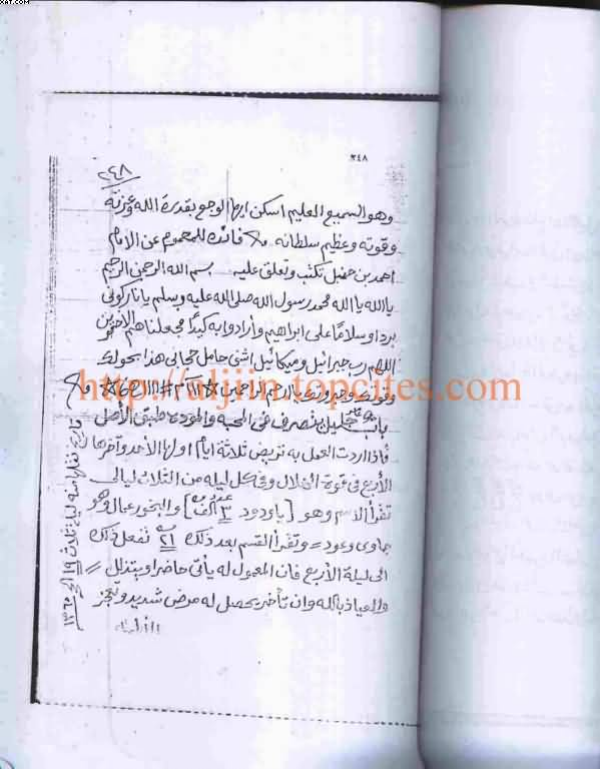 XAT.COM
٢٤٨
٢٤٨
وهو السميع العليم اسكن ايها الوجع بقدرة الله وعزته
وقوته وعظيم سلطانه فائده للمحموم عن الامام
احمد بن حنبل تكتب وتعلق عليه بسم الله الرحمن الرحيم
يا الله يا الله محمد رسول الله صلى الله عليه وسلم يا نار كوني
بردا وسلاما على ابراهيم وأرادوا به كيدا فجعلناهم الاخسرين
اللهم رب جبرائيل وميكائيل اشفي حامل كتابي هذا بحولك
وقوتك وجبروتك يا ارحم الراحمين
http://aljiin.topcites.com
باب جليل يتصرف في المحبه والموده طبق الأصل
فاذا اردت العمل به تريض ثلاثة ايام اولها الأحد وآخرها
الأربع في قوة الهلال وفي كل ليله من الثلاث ليالي
تقرأ الاسم وهو [يا ودود ٣ الف] والبخور عمال وهو
جاوى وعود = وتقرأ القسم بعد ذلك ٢١ تفعل ذلك
الى ليلة الأربع فان المعمول له يأتي حاضرا ويتذلل =
والعياذ بالله وان تأخر يحصل له مرض شديد وتعجز
الأطباء
تاريخ نقلها منه ليلة ثلاث ١٩ الحجة ١٣٦٥